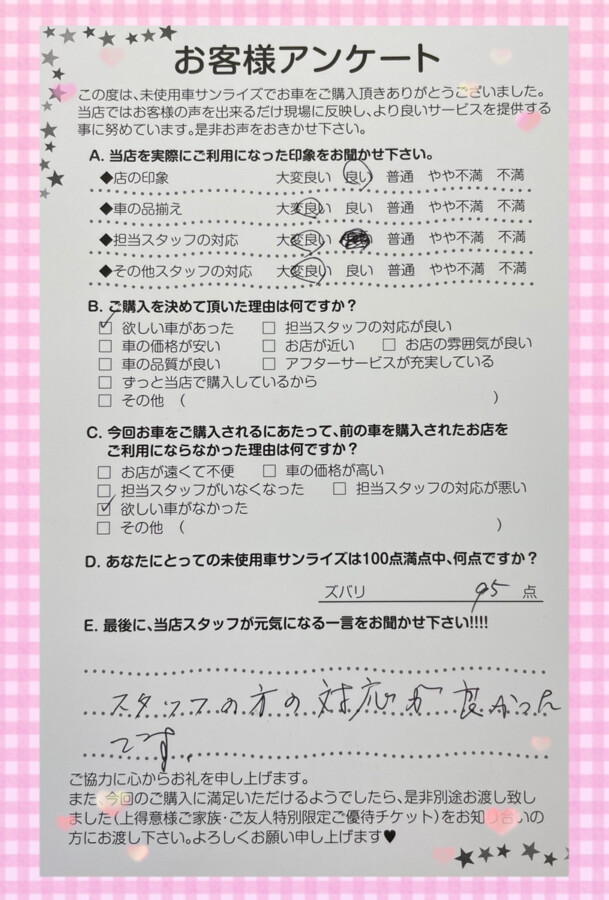 お客様アンケート
この度は、未使用車サンライズでお車をご購入頂きありがとうございました。
当店ではお客様の声を出来るだけ現場に反映し、より良いサービスを提供する
事に努めています。是非お声をおきかせ下さい。
A. 当店を実際にご利用になった印象をお聞かせ下さい。
◆店の印象 大変良い 良い 普通 やや不満 不満
◆車の品揃え 大変良い 良い 普通 やや不満 不満
◆担当スタッフの対応 大変良い 普通 やや不満 不満
◆その他スタッフの対応 大変良い 良い 普通 やや不満 不満
B. ご購入を決めて頂いた理由は何ですか?
☑ 欲しい車があった □ 担当スタッフの対応が良い
□ 車の価格が安い □ お店が近い □ お店の雰囲気が良い
□ 車の品質が良い □ アフターサービスが充実している
□ ずっと当店で購入しているから
□ その他 ( )
C. 今回お車をご購入されるにあたって、前の車を購入されたお店を
ご利用にならなかった理由は何ですか?
□ お店が遠くて不便 □ 車の価格が高い
□ 担当スタッフがいなくなった □ 担当スタッフの対応が悪い
☑ 欲しい車がなかった
□ その他 ( )
D. あなたにとっての未使用車サンライズは100点満点中、何点ですか?
ズバリ 95 点
E. 最後に、当店スタッフが元気になる一言をお聞かせ下さい!!!!
スタッフの方の対応が良かった
です。
ご協力に心からお礼を申し上げます。
また、今回のご購入に満足いただけるようでしたら、是非別途お渡し致し
ました(上得意様ご家族・ご友人特別限定ご優待チケット)をお知り合いの
方にお渡し下さい。よろしくお願い申し上げます♥